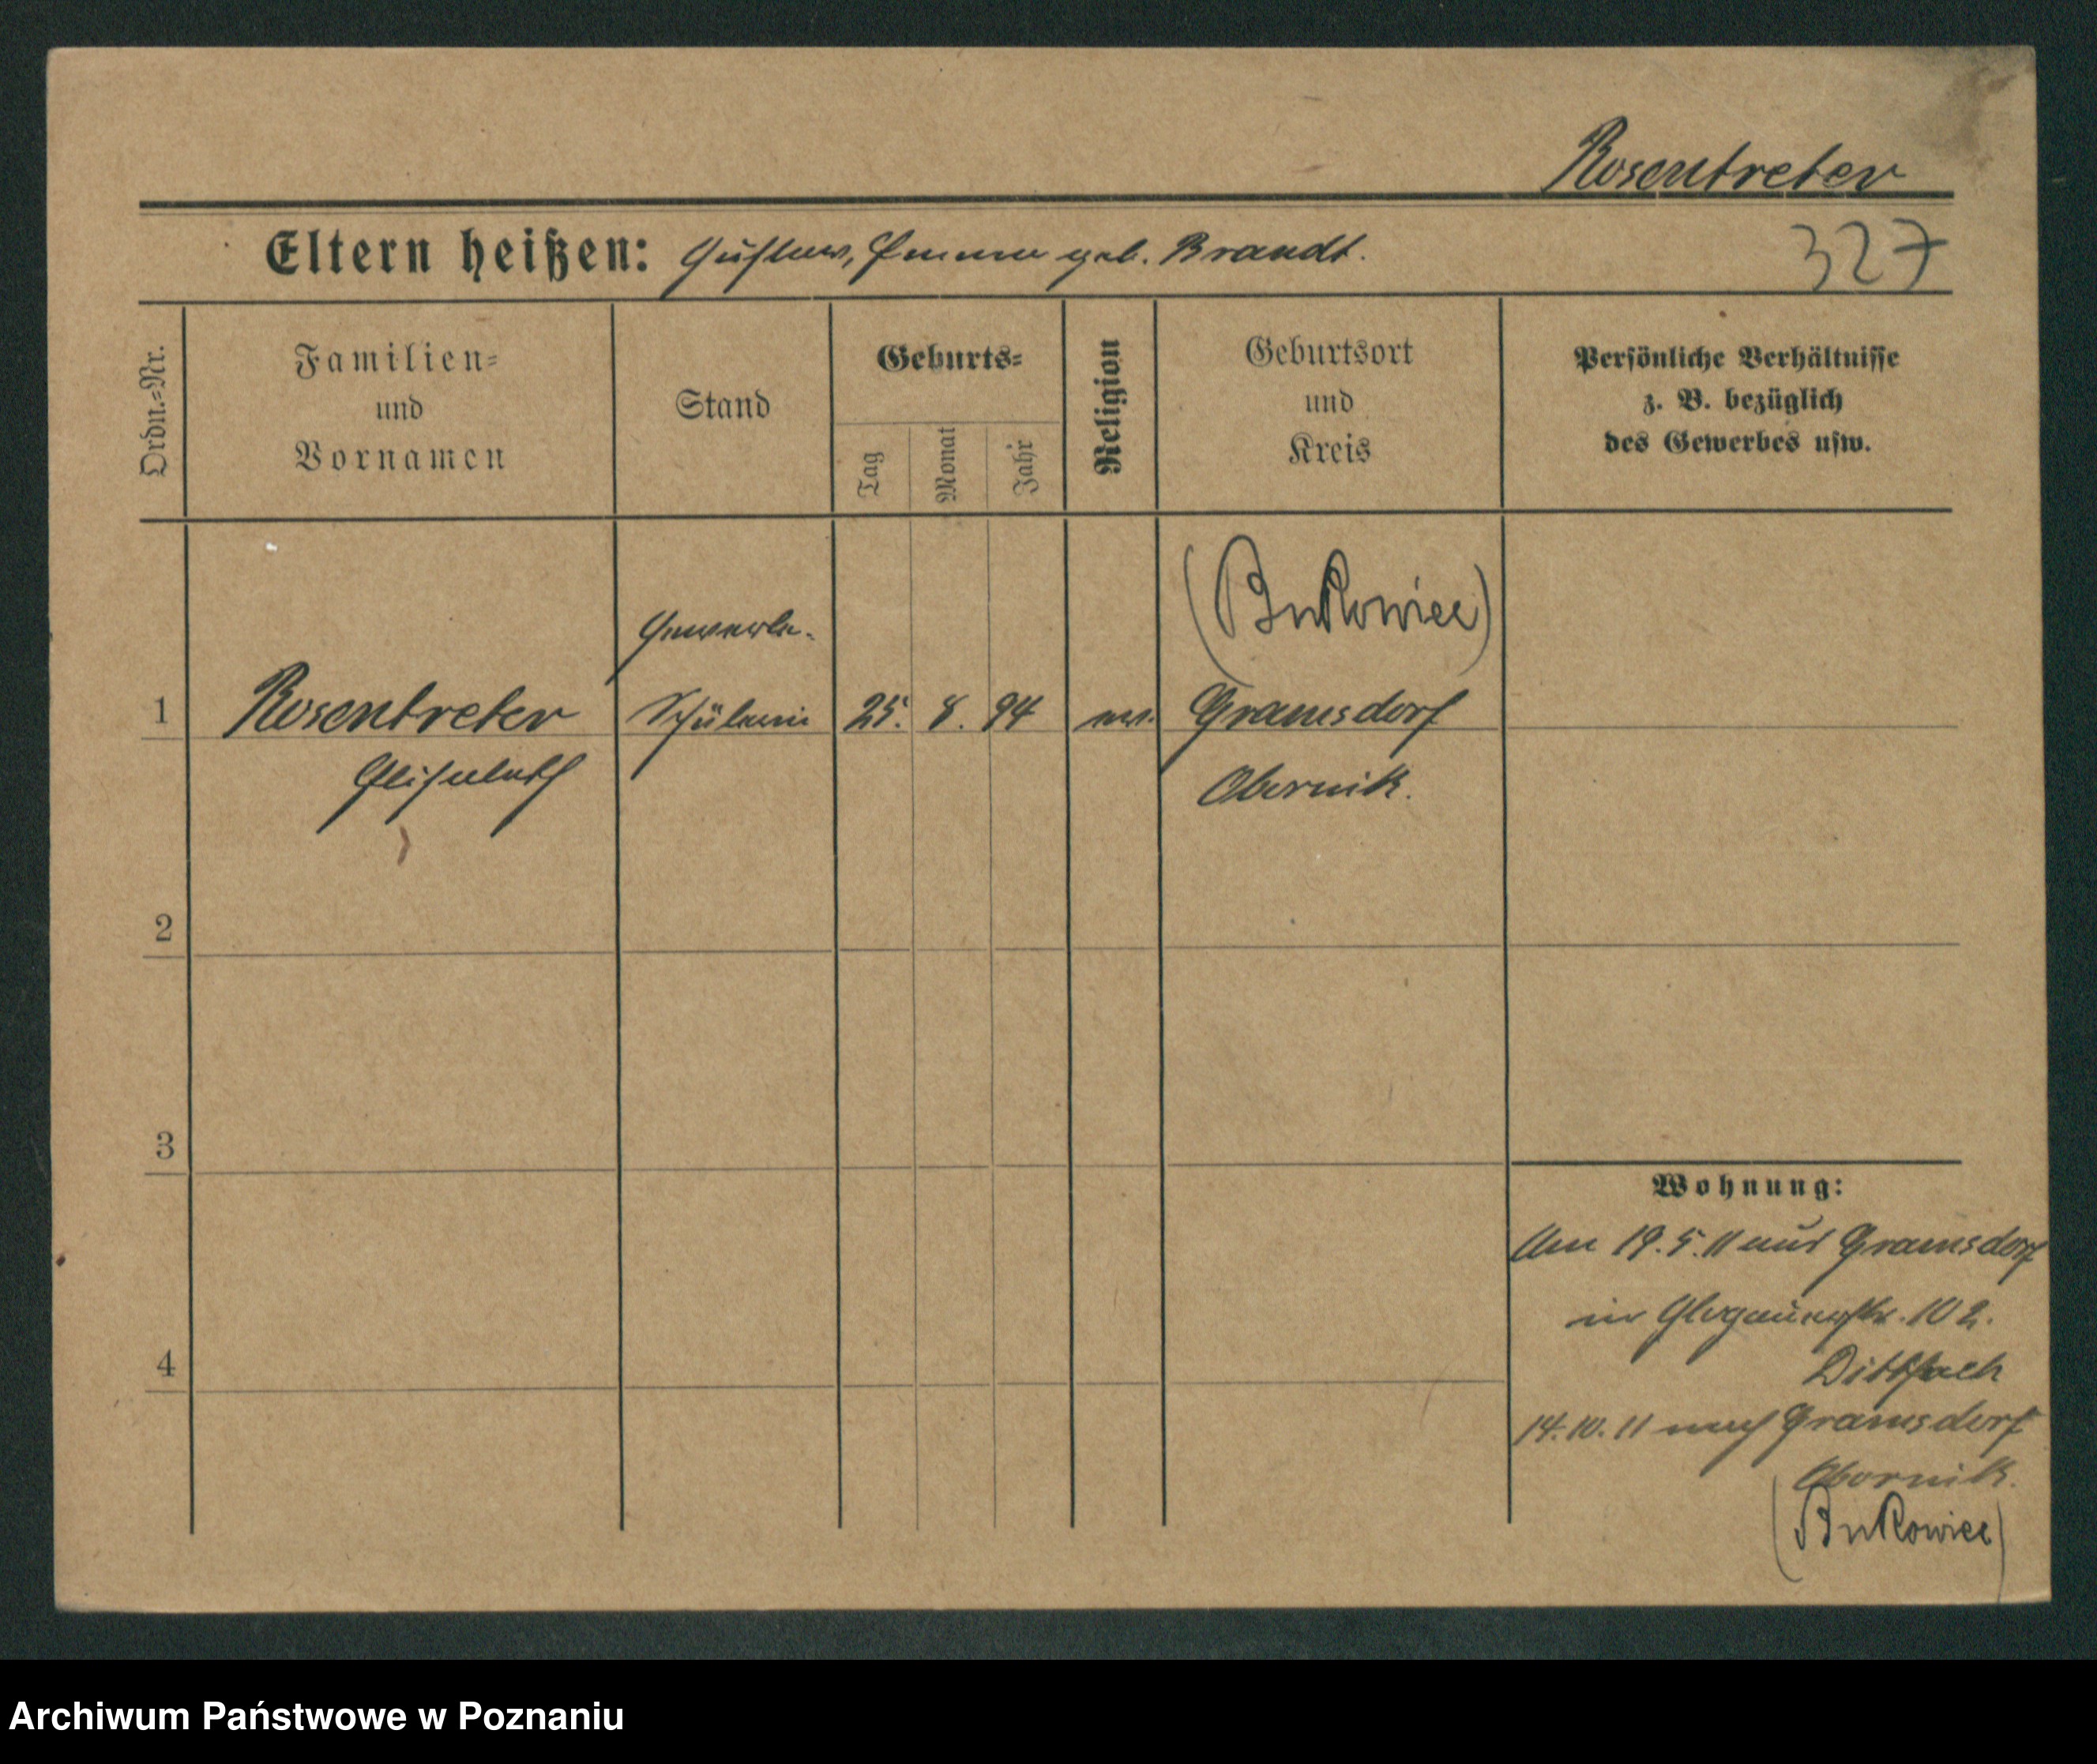 Rosentreter
Eltern heißen: Gustav, Emma geb. Brandt.
327
Ordn.-Nr.
Familien-
und
Vornamen
Stand
Geburts-
Tag
Monat
Jahr
Religion
Geburtsort
und
Kreis
Persönliche Verhältnisse
z. B. bezüglich
des Gewerbes usw.
(Bukowiec)
Gewerbe-
1 Rosentreter Schülerin 25. 8. 94 ev. Gramsdorf
Elisabeth Obornik.
2
3
4
Wohnung:
Am 19.5.11 aus Gramsdorf
in Glogauerstr. 102.
14.10.11 nach Gramsdorf
Obornik.
(Bukowiec)
Archiwum Państwowe w Poznaniu